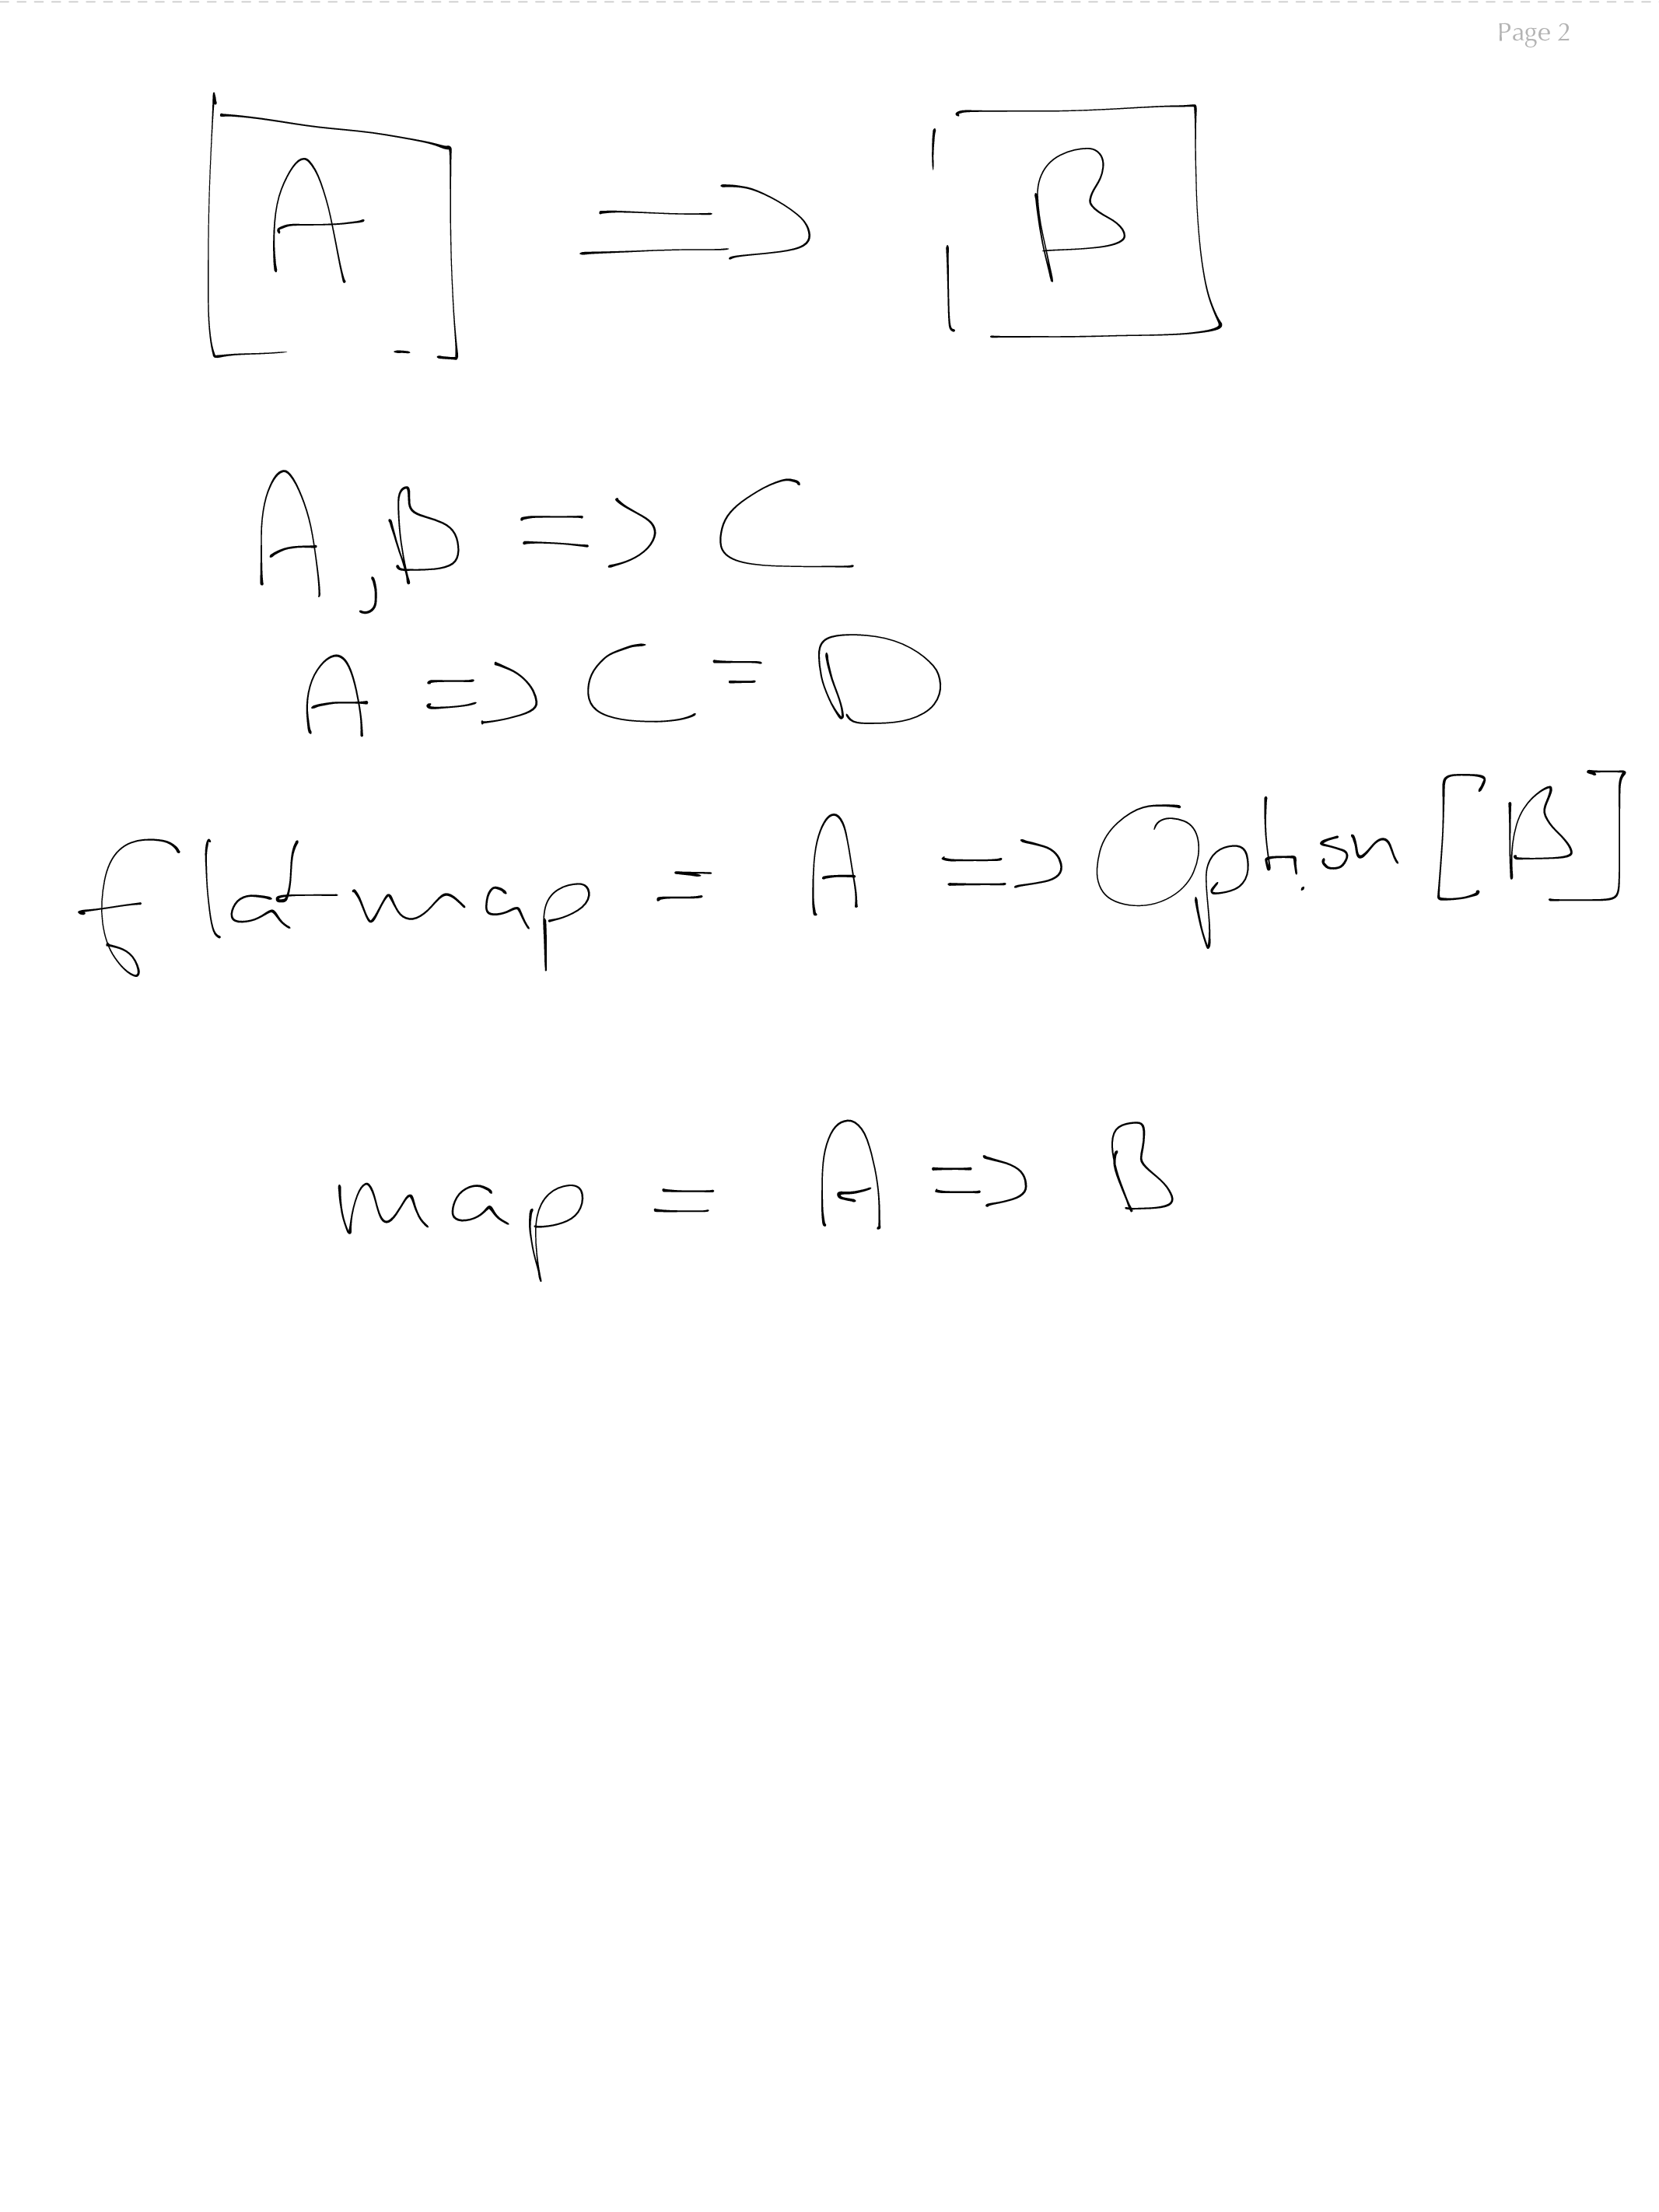 Page 2
A => B
A, B => C
A => C = D
flatmap = A => Option [B]
map = A => B